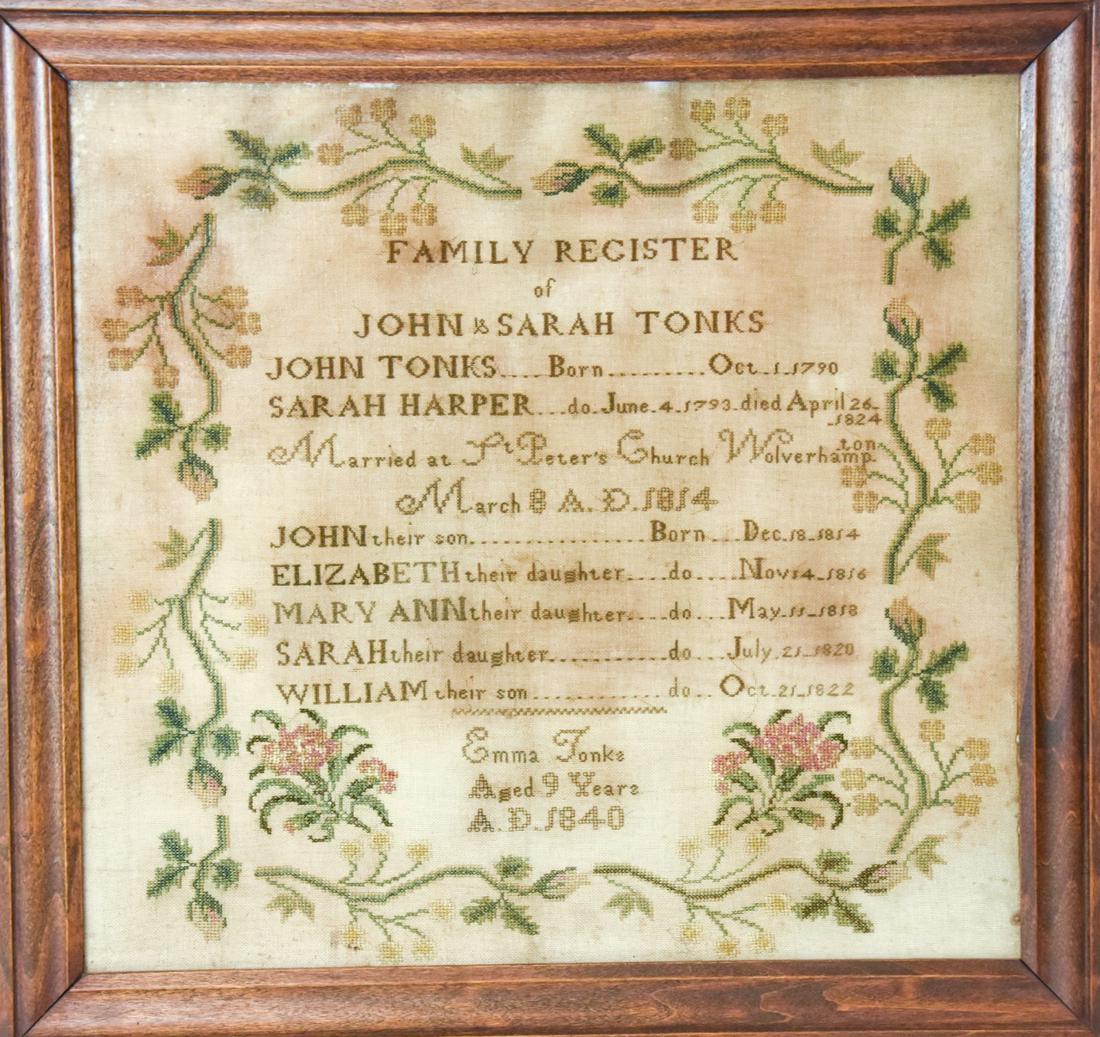 FAMILY REGISTER
of
JOHN & SARAH TONKS
JOHN TONKS.....Born.........Oct_1_1790
SARAH HARPER...do_June_4_1793_died April 26_
_1824
Married at St Peter's Church Wolverhamp
ton
March 8 A.D.1814
JOHN their son.................Born...Dec_18_1854
ELIZABETH their daughter....do....Nov14_1816
MARY ANN their daughter....do....May_11_1818
SARAH their daughter...........do...July_21_1820
WILLIAM their son.............do..Oct_21_1822
Emma Tonks
Aged 9 Years
A.D.1840